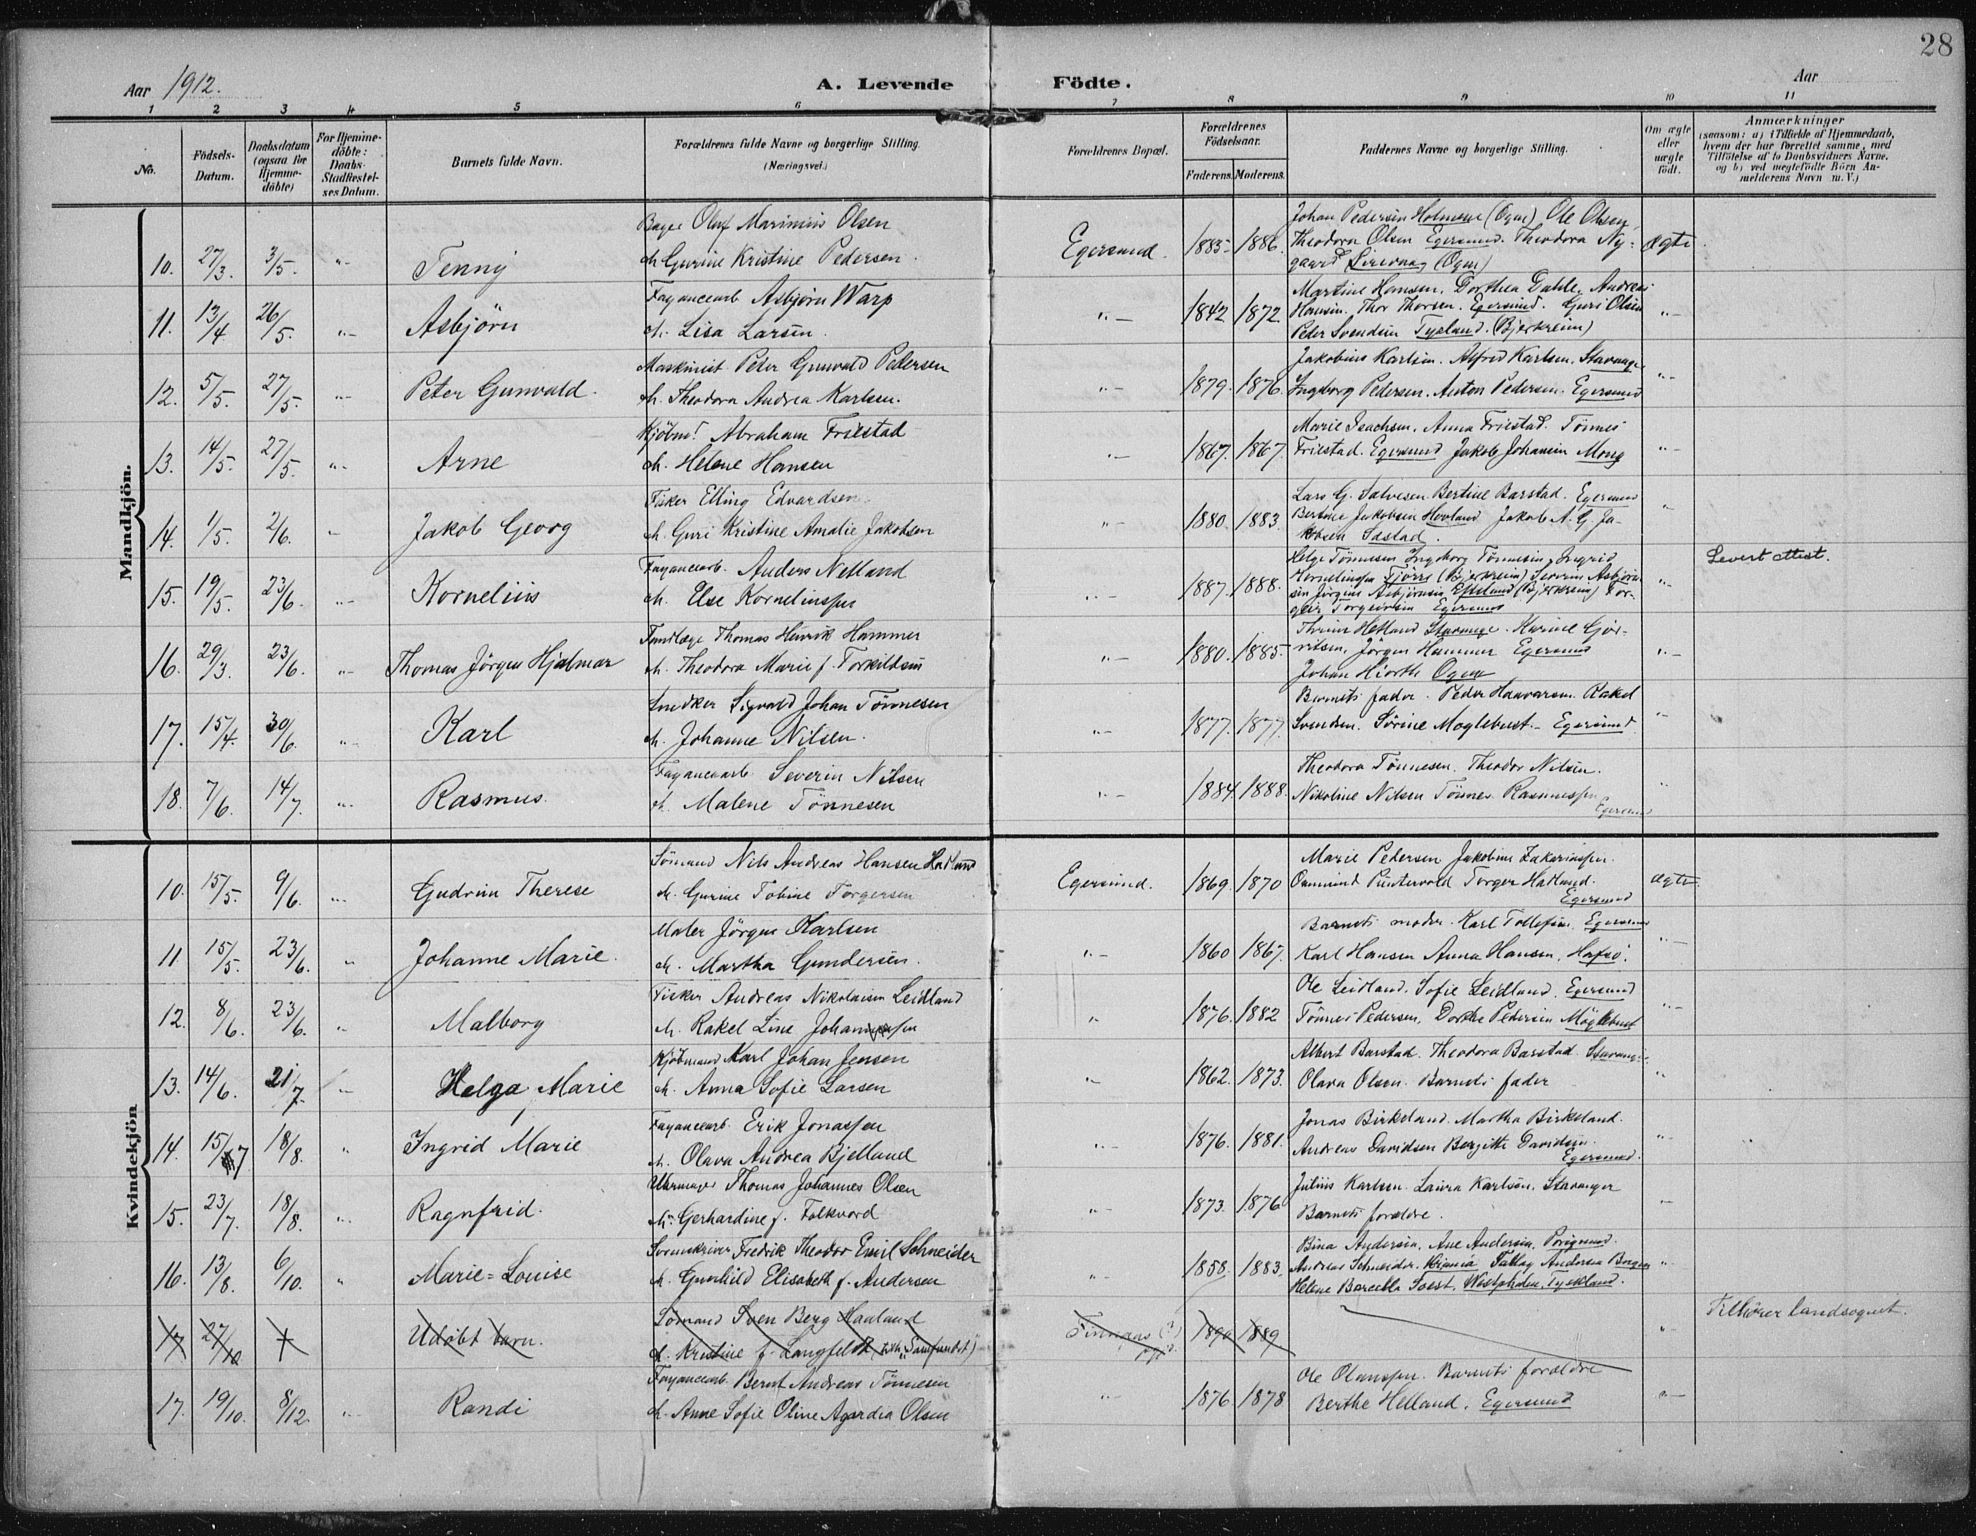 28
Aar 1912.
A. Levende Födte.
Aar
1 2 3 4 5 6 7 8 9 10 11
No.
Födsels-Datum.
Daabsdatum (ogsaa for Hjemme-döbte)
For Hjemme-döbte: Daabs-Stadfestel-ses Datum.
Barnets fulde Navn.
Forældrenes fulde Navne og borgerlige Stilling. (Næringsvei.)
Forældrenes Bopæl.
Forældrenes Födselsaar.
Faderens. Moderens.
Faddernes Navne og borgerlige Stilling.
Om ægte eller uægte födt.
Anmærkninger
(saasom: a) i Tilfælde af Hjemmedaab, hvem der har forrettet samme, med Tilföielse af to Daabsvidners Navne, og b) ved uægtefödte Börn An-melderens Navn m. V.)
Mandkjön.
Olaf Marinius Olsen
Johan Pedersen (Ogne) Ole Olsen,
10. 27/3. 3/5. "- Tenny M. Gurine Kristine Pedersen. Egersund. 1885- 1886. Theodora Olsen Egersund. Theodora Ny- ægte
gaard Sirevaag (Ogne)
Fayancearb Asbjørn Warp
Martine Hansen. Dorthea Dahle, Andreas
11. 13/4 26/5. "- Asbjörn M. Lisa Larsen. "- 1842. 1872. Hansen. Thor Thorsen. Egersund. Guri Olsen "-
Peder Svendsen (Bjerkreim)
Maskinist Peter Gunvald Pedersen
Jakobine Karlsen. Alfred Karlsen. Stavanger
12. 5/5. 27/5. "- Peter Gunvald. M. Theodora Andrea Karlsen. "- 1879. 1876. Ingeborg Pedersen. Anton Pedersen. Egersund "-
Kjöbm. Abraham Friestad
Marie Isachsen. Anna Friestad. Tönnes
13. 14/5. 27/5. "- Arne M. Helene Hansen "- 1867. 1867. Friestad. Egersund Jakob Johansen Mong "-
Fisker Elling Edvardsen
Lars G. Salvesen Bertine Barstad. Egersund
14. 1/5. 2/6. "- Jakob Georg M. Guri Kristine Amalie Jakobsen "- 1880. 1883. Jakobsen Hovland Jakob A. G. Ja-
kobsen
Fayancearb. Anders Netland
Helge Tönnesen Ingeborg Tönnesen, Ingrid
15. 19/5. 23/6. "- Kornelius M. Else Korneliussen "- 1887. 1888. (Bjerkreim) Asbjörn- "- Levert attest.
sen Jörgine Asbjörnsen (Bjerkreim) Tor-
geir Torgeirsen Egersund
Tandlæge Thomas Henrik Hammer
Hetland Stavanger. Karine
16. 29/3. 23/6. "- Thomas Jörgen Hjalmar M. Theodora Marie f. Torkildsen "- 1880. 1885. Jörgen Hammer Egersund "-
Johan Hiorth Ogne
Snedker Sigvald Johan Tönnesen
Barnets fader. Peder Haavarsen. Rakel
17. 15/4. 30/6. "- Karl M. Johanne Nilsen. "- 1877. 1877. Svendsen. Sörine Moglebust- Egersund. "-
Fayancearb. Severin Nilsen
Theodora Tönnesen. Theodor Nilsen.
18. 7/6. 14/7. "- Rasmus. M. Malene Tönnesen "- 1884. 1888. Nikoline Nilsen Tönnes Rasmussen "
Egersund
Kvindekjön
Sömand Nils Andreas Hansen Hatland
Marie Pedersen Jakobine Zakariassen.
10. 15/5. 9/6. "- Gudrun Therese M. Gurine Tobine Torgersen Egersund. 1869. 1870 Ommund Puntervold Torger Hatland. ægte
Egersund
Maler Jörgen Karlsen
Barnets moder. Karl Tollefsen. Egersund
11. 15/5. 23/6. " Johanne Marie. M. Martha Gundersen. "- 1860 1867. Karl Hansen Anna Hansen, Hafsö. "-
Fisker Andreas Nikolaisen Leidland
Ole Leidland. Sofie Leidland. Egersund
12. 8/6. 23/6. " Malborg M. Rakel Line Johannessen " 1876. 1882 Tönnes Pedersen, Dorthe Pedersen Möglebust "-
Kjöbmand Karl Johan Jensen
Albert Barstad. Theodora Barstad. Stavanger.
13. 14/6. 21/7. "- Helga Marie M. Anna Sofie Larsen "- 1862. 1873. Olava Olsen. Barnets fader "
Fayancearb. Erik Jonassen
Jonas Birkeland. Martha Birkeland.
14. 15/7 18/8. " Ingrid Marie M. Olava Andrea Bjelland "- 1876. 1881. Andreas Davidsen Bergitte Davidsen. "-
Egersund.
Uhrmager Thomas Johannes Olsen
Julius Karlsen. Laura Karlsen. Stavanger
15. 23/7. 18/8. "- Ragnfrid. M. Gerhardine f. Folkvord "- 1873. 1876 Barnets forældre. "-
Sorenskriver Fredrik Theodor Emil Schneider
Bina Andersen, Ane Andersen, Porsgrund.
16. 13/8. 6/10. " Marie-Louise M. Gunhild Elisabeth f. Andersen " 1858. 1883. Andreas Schneider. Kristiania Andersen Bergen "-
Helene Soest. Westphalen, Tyskland.
Sömand Sven Berg Haaland
17 27/10 Udöbt barn. M. Kristine f. Langfeldt Finnaas (?) 1890 1889 "- Tilhörer landsognet.
Fayancearb. Bernt Andreas Tönnesen
Ole Olaussen. Barnets forældre
17. 19/10. 8/12. "- Randi M. Anne Sofie Oline Agardia Olsen "- 1876. 1878 Berthe Helland. Egersund "-